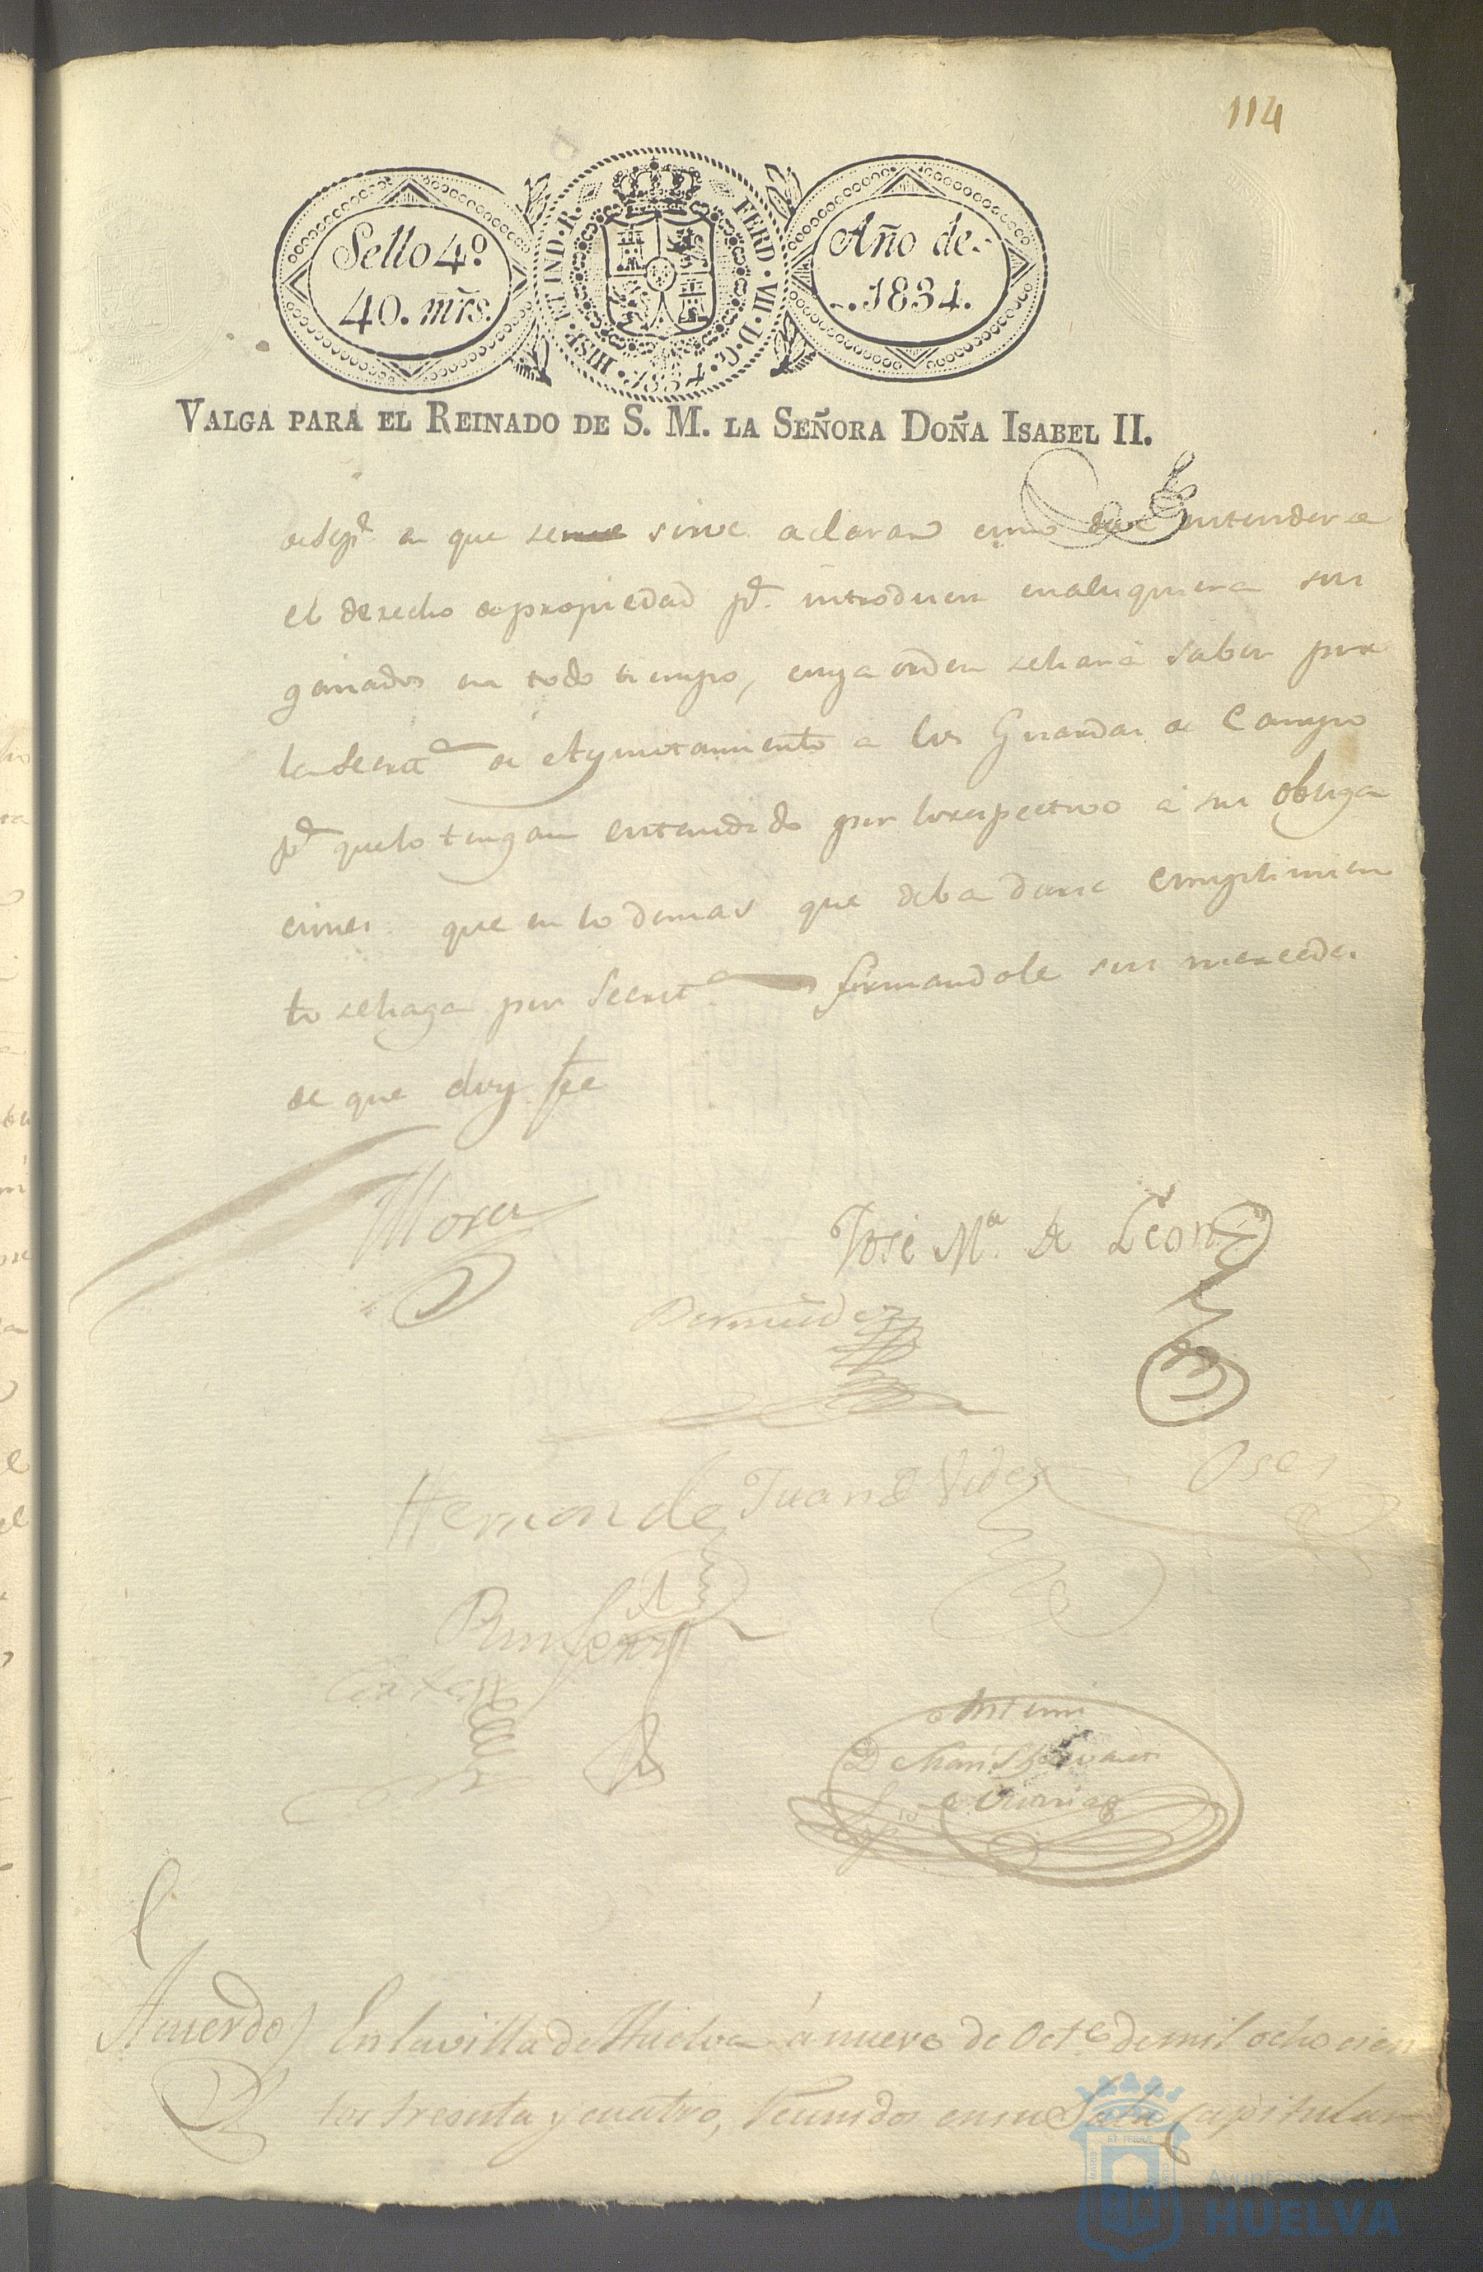 114
Sello 4º
40. mrs.
HISP. ET IND. R.
FERD. VII. D. G.
1834
Año de
1834.
VALGA PARA EL REINADO DE S. M. LA SEÑORA DOÑA ISABEL II.
en que se sirve aclarar como entenderse
el derecho de propiedad pª introducir cualesquiera sus
ganados en todo tiempo, cuya orden se hará saber por
la Secretª de Ayuntamiento a los Guardas de Campo
pª que lo tengan entendido por lo respectivo á sus obliga
ciones que en lo demas que deba darse cumplimien
to se haga por Secretª firmandole sus mercedes
de que doy fee
Mora
José Mª de Leon
Bermudez
Hernandez
Juan de Vides
Oses
Antemi
Acuerdo
En la villa de Huelva á nueve de Octe de mil ochocien
tos treinta y cuatro, reunidos en su Sala Capitular
Ayuntamiento de
HUELVA